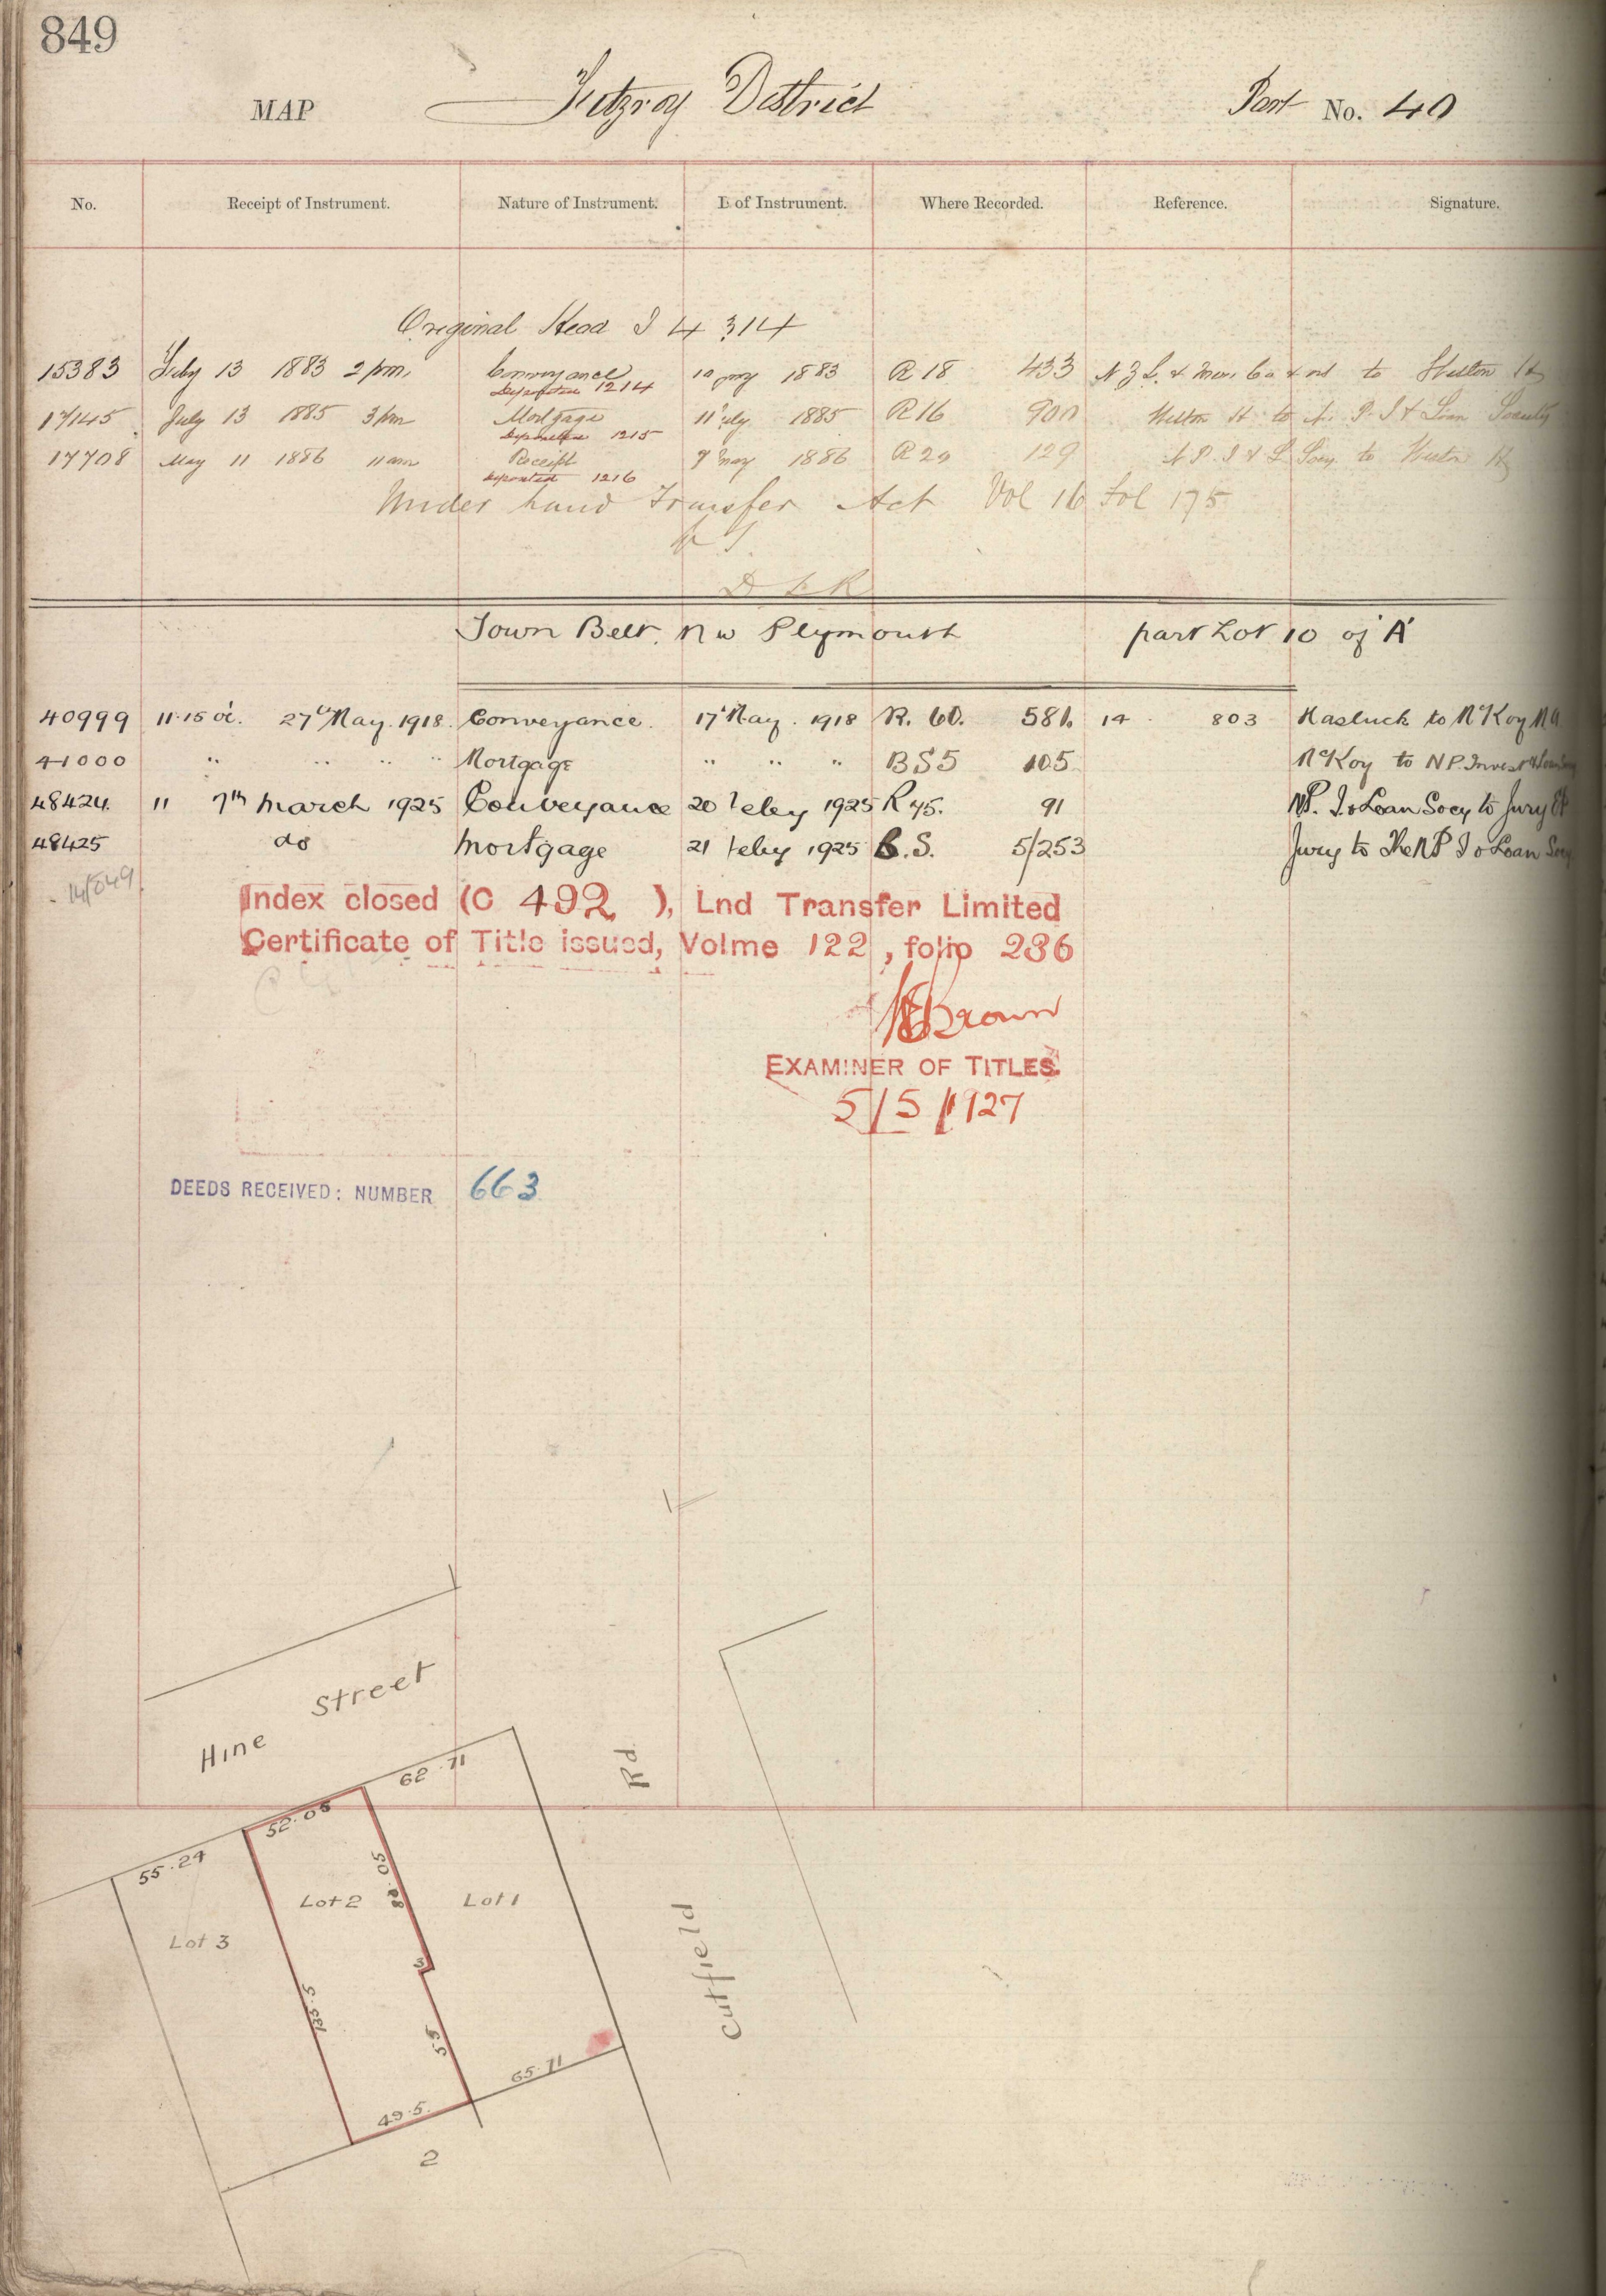 849
MAP Fitzroy District Part No. 40
No. Receipt of Instrument. Nature of Instrument. of Instrument. Where Recorded. Reference. Signature.
Original Head I 4 314
15383 Feby 13 1883 2 pm. Conveyance 1883 R 18 433 N Z L. & Mer. Co & to
Deposited 1214
17145 July 13 1885 3 pm Mortgage 11 July 1885 R 16 900 to N. P. I & Loan Society
Deposited 1215
17708 May 11 1886 11 am Receipt 7 May 1886 R 129 N P. I & L Socy. to
Deposited 1216
Under Land Transfer Act Vol 16 Fol 175
D L R
Town Belt. New Plymouth part Lot 10 of 'A'
40999 11.15 27th May. 1918. Conveyance. 17 May. 1918 R. 60. 581. 14 803 Hasluck to McKoy
41000 " " " " Mortgage " " " BS5 105 McKoy to N P. Invest & Loan Socy
48424. 11 7th March 1925 Conveyance 20 Feby 1925 R 45. 91 N.P. I & Loan Socy to Jury
48425 do Mortgage 21 Feby 1925 B.S. 5/253 Jury to The N P I & Loan Socy
14/849
Index closed (C 492 ), Lnd Transfer Limited
Certificate of Title issued, Volme 122, folio 236
Brown
EXAMINER OF TITLES.
5/5/1927
DEEDS RECEIVED: NUMBER 663
Hine Street
Rd.
62.71
52.05
55.29
88.05
Lot 2
Lot 1
Lot 3
3
133.5
55
Cutfield
65.71
49.5.
2